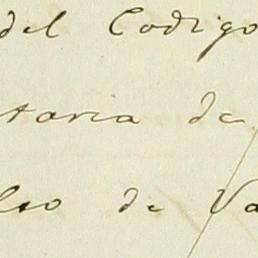 del Codigo
taria de
leo de Va